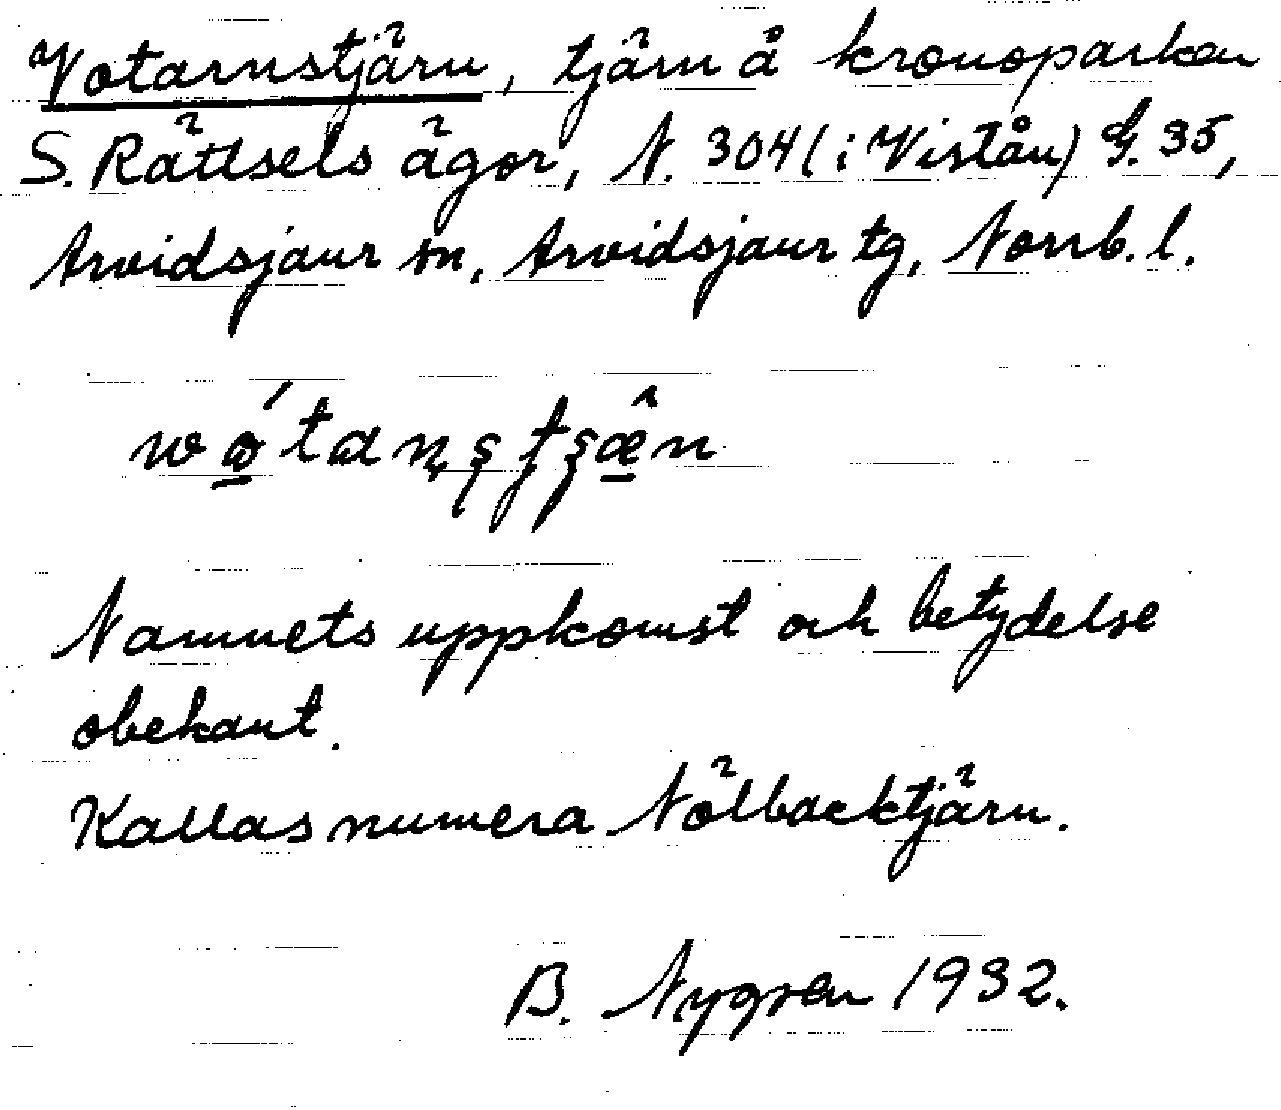 Votarnstjärn, tjärn å kronoparken
S. Rättsels ägor, N. 304 (i Viståu) G. 35,
Arvidsjaur sn, Arvidsjaur tg, Norrb. l.
Namnets uppkomst och betydelse
obekant.
Kallas numera Nölbacktjärn.
B. Nygren 1932.